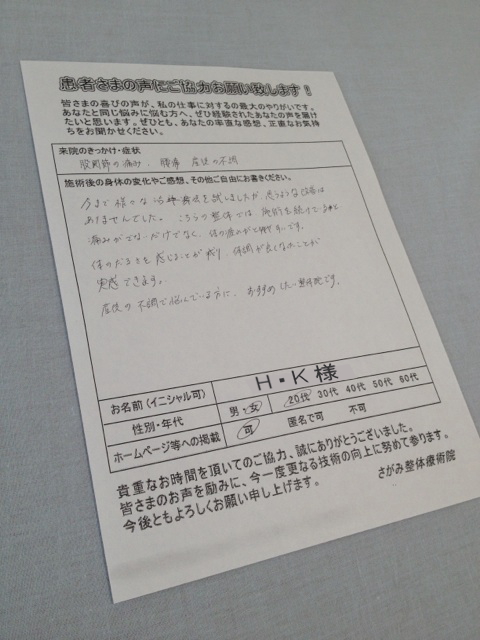 患者さまの声にご協力お願い致します！
皆さまの喜びの声が、私の仕事に対するの最大のやりがいです。
あなたと同じ悩みに悩む方へ、ぜひ経験されたあなたの声を届け
たいと思います。ぜひとも、あなたの率直な感想、正直なお気持
ちをお聞かせください。
来院のきっかけ・症状
股関節の痛み、腰痛 産後の不調
施術後の身体の変化やご感想、その他ご自由にお書きください。
今まで様々な治療・療法を試しましたが、思うような改善は
ありませんでした。こちらの整体では、施術を続けていると
痛みがでないだけでなく、体の疲れがとれやすいです。
体のだるさを感じることが減り、体調が良くなったことが
実感できます。
産後の不調で悩んでいる方に、おすすめしたい整体院です。
お名前（イニシャル可）
H・K様
性別・年代
男・女
20代 30代 40代 50代 60代
ホームページ等への掲載
可 匿名で可 不可
貴重なお時間を頂いてのご協力、誠にありがとうございました。
皆さまのお声を励みに、今一度更なる技術の向上に努めて参ります。
今後ともよろしくお願い申し上げます。 さがみ整体療術院